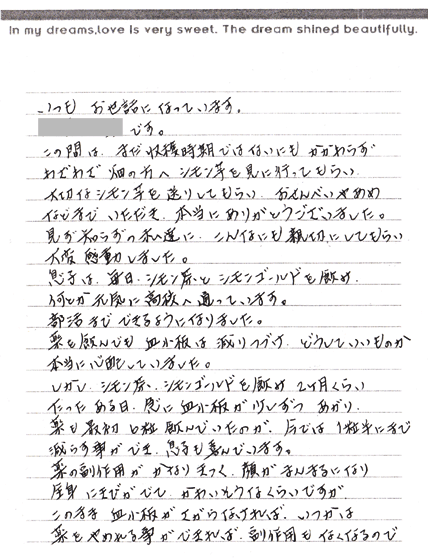 In my dreams,love is very sweet. The dream shined beautifully.
いつも お世話に なっています。
です。
この間は、まだ 収穫時期では ないにも かかわらず
わざわざ 畑の方へ シモン芋を 見に行ってもらい
大切なシモン芋を 送りしてもらい、おせんべいやあめ
なども いただき、本当に ありがとうございました。
見ず知らずの私達に、こんなにも 親切にしてもらい
大変 感動しました。
息子は、毎日、シモン茶と シモンゴールドを 飲め、
何とか元気に 高校へ 通っています。
部活まで できるようになりました。
薬を飲んでも 血小板は 減りつづけ、どうしていいものか
本当に心配していました。
しかし、シモン茶、シモンゴールドを飲め 2ヶ月くらい
たった ある日、急に 血小板が 少しずつ あがり、
薬も最初 6粒 飲んでいたのが、今では 1粒半にまで
減らす事ができ、息子も喜んでいます。
薬の副作用が かなりきつく、顔が まんまるになり
全身 にきびがでて、かわいそうなくらいですが、
このまま 血小板が さがらなければ、いつかは
薬を やめれる事ができれば、副作用も なくなるので